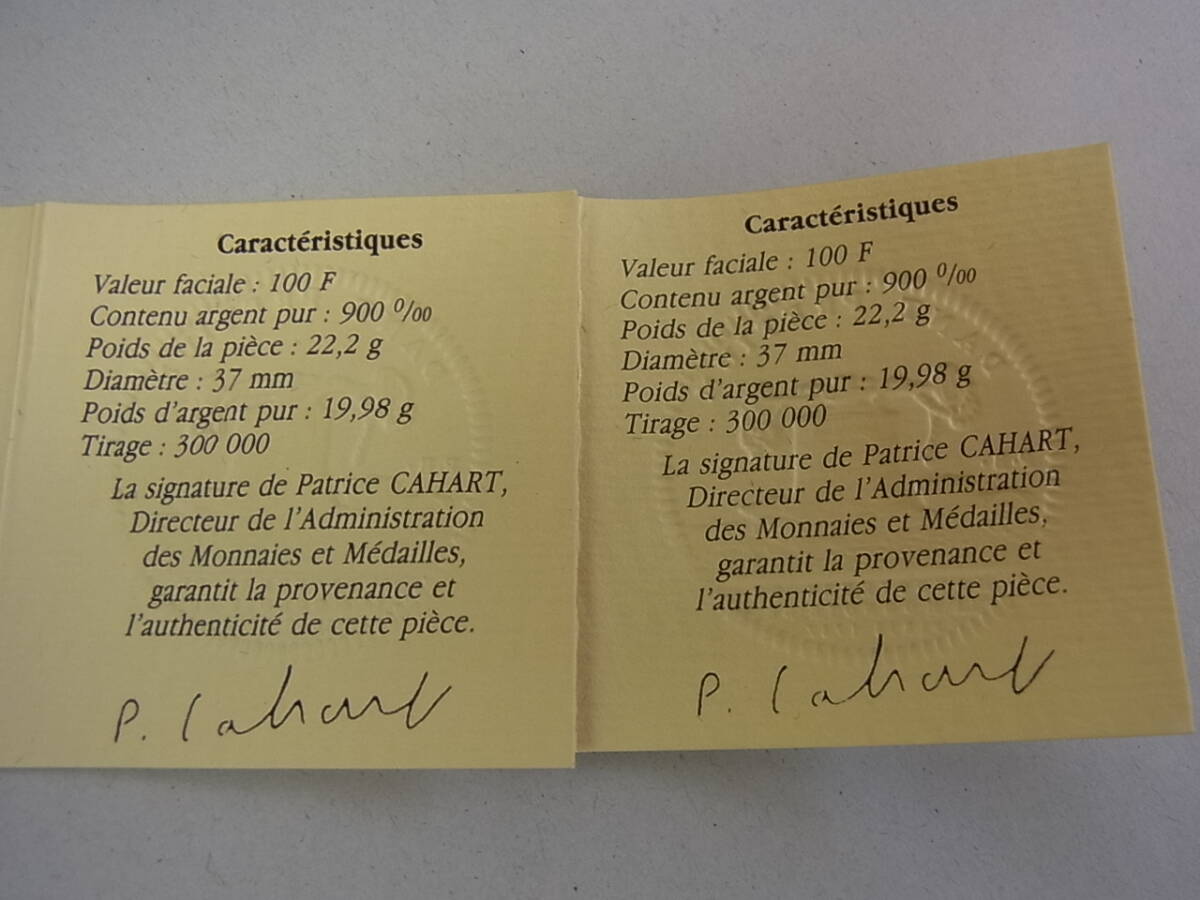 Caractéristiques
Valeur faciale : 100 F
Contenu argent pur : 900 0/00
Poids de la pièce : 22,2 g
Diamètre : 37 mm
Poids d'argent pur : 19,98 g
Tirage : 300 000
La signature de Patrice CAHART,
Directeur de l'Administration
des Monnaies et Médailles,
garantit la provenance et
l'authenticité de cette pièce.
P. Cahart
Caractéristiques
Valeur faciale : 100 F
Contenu argent pur : 900 0/00
Poids de la pièce : 22,2 g
Diamètre : 37 mm
Poids d'argent pur : 19,98 g
Tirage : 300 000
La signature de Patrice CAHART,
Directeur de l'Administration
des Monnaies et Médailles,
garantit la provenance et
l'authenticité de cette pièce.
P. Cahart